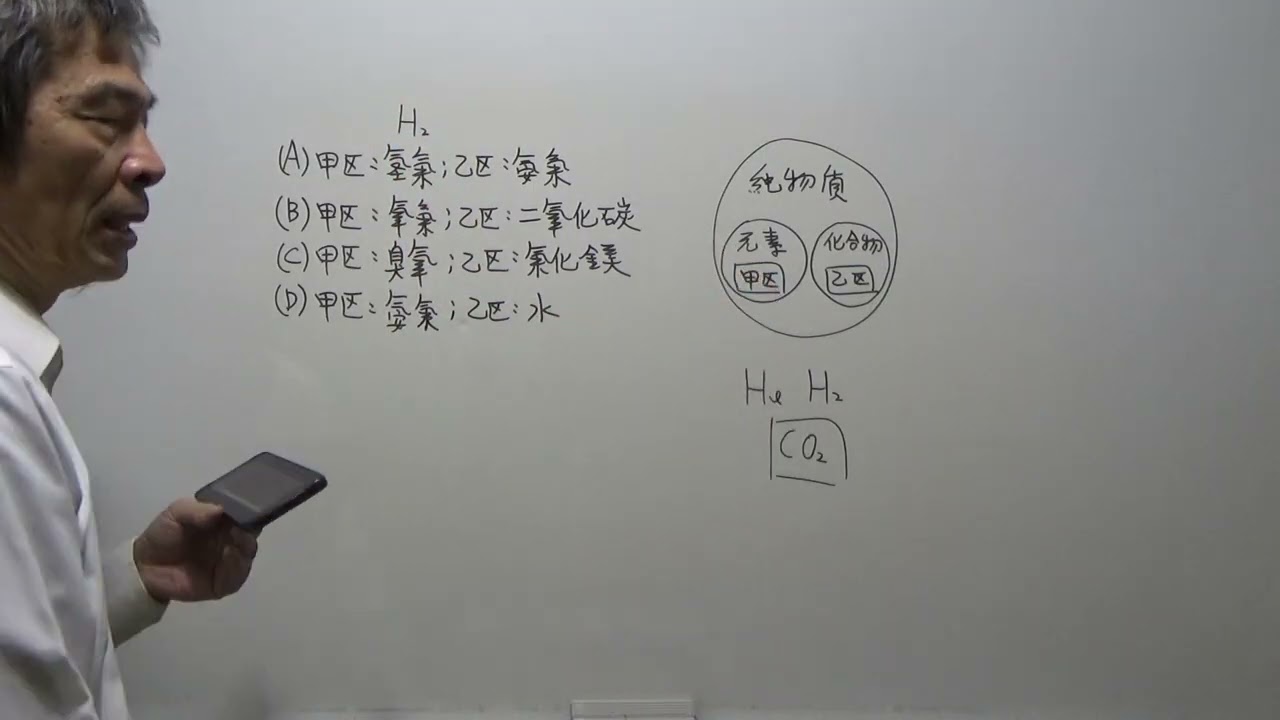 H₂
(A) 甲区：氫氣；乙区：氨氣
(B) 甲区：氧氣；乙区：二氧化碳
(C) 甲区：臭氧；乙区：氯化鎂
(D) 甲区：氨氣；乙区：水
純物質
元素 化合物
甲区 乙区
He H₂
CO₂